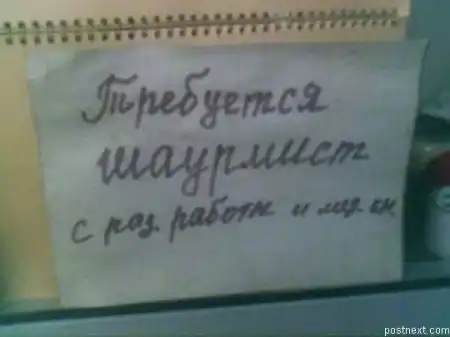 Требуется
шаурмист
с раз. работн и мед. кн.
postnext.com